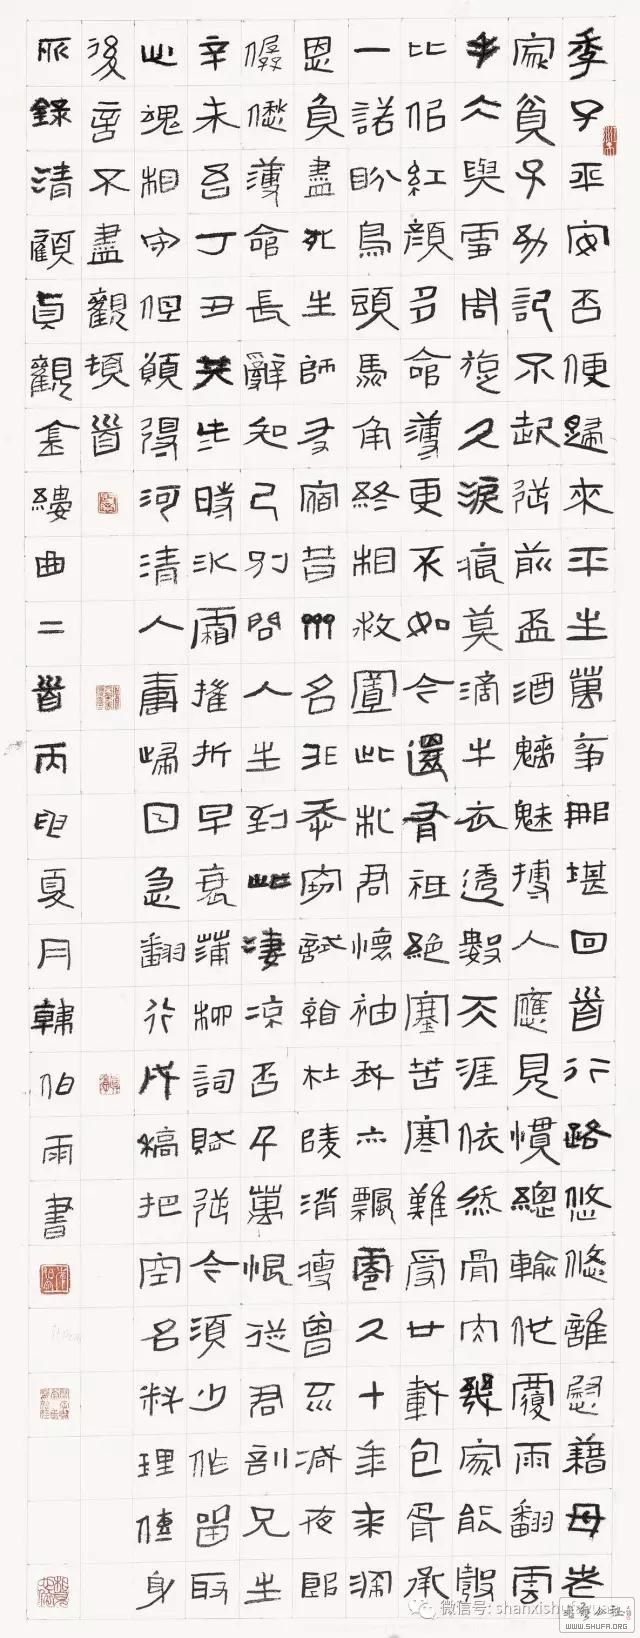 季子平安否便歸來平生萬事那堪回首行路悠悠誰慰藉母老
家貧子幼記不起從前盃酒魑魅搏人應見慣總輸他覆雨翻雲
手仌與雪周旋久淚痕莫滴牛衣透數天涯依然骨肉幾家能彀
比似紅顏多命薄更不如今還有祗絕塞苦寒難受廿載包胥承
一諾盼烏頭馬角終相救置此札君懷袖我亦飄零久十年來深
恩負盡死生師友宿昔齊名非忝竊試看杜陵消瘦曾不減夜郎
僝僽薄命長辭知己別問人生到此淒涼否千萬恨從君剖兄生
辛未吾丁丑共些時冰霜摧折早衰蒲柳詞賦從今須少作留取
心魂相守但願得河清人壽歸日急翻行戍稿把空名料理傳身
後言不盡觀頓首
所錄清顧貞觀金縷曲二首丙申夏月韓伯雨書
微信号: shanxishufayuan
WWW.SHUFA.ORG